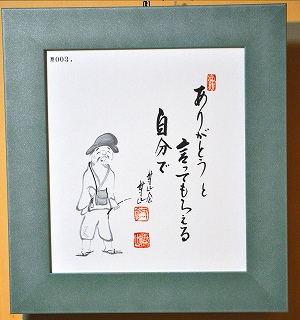 恵003.
ありがとう と
言ってもらえる
自分で